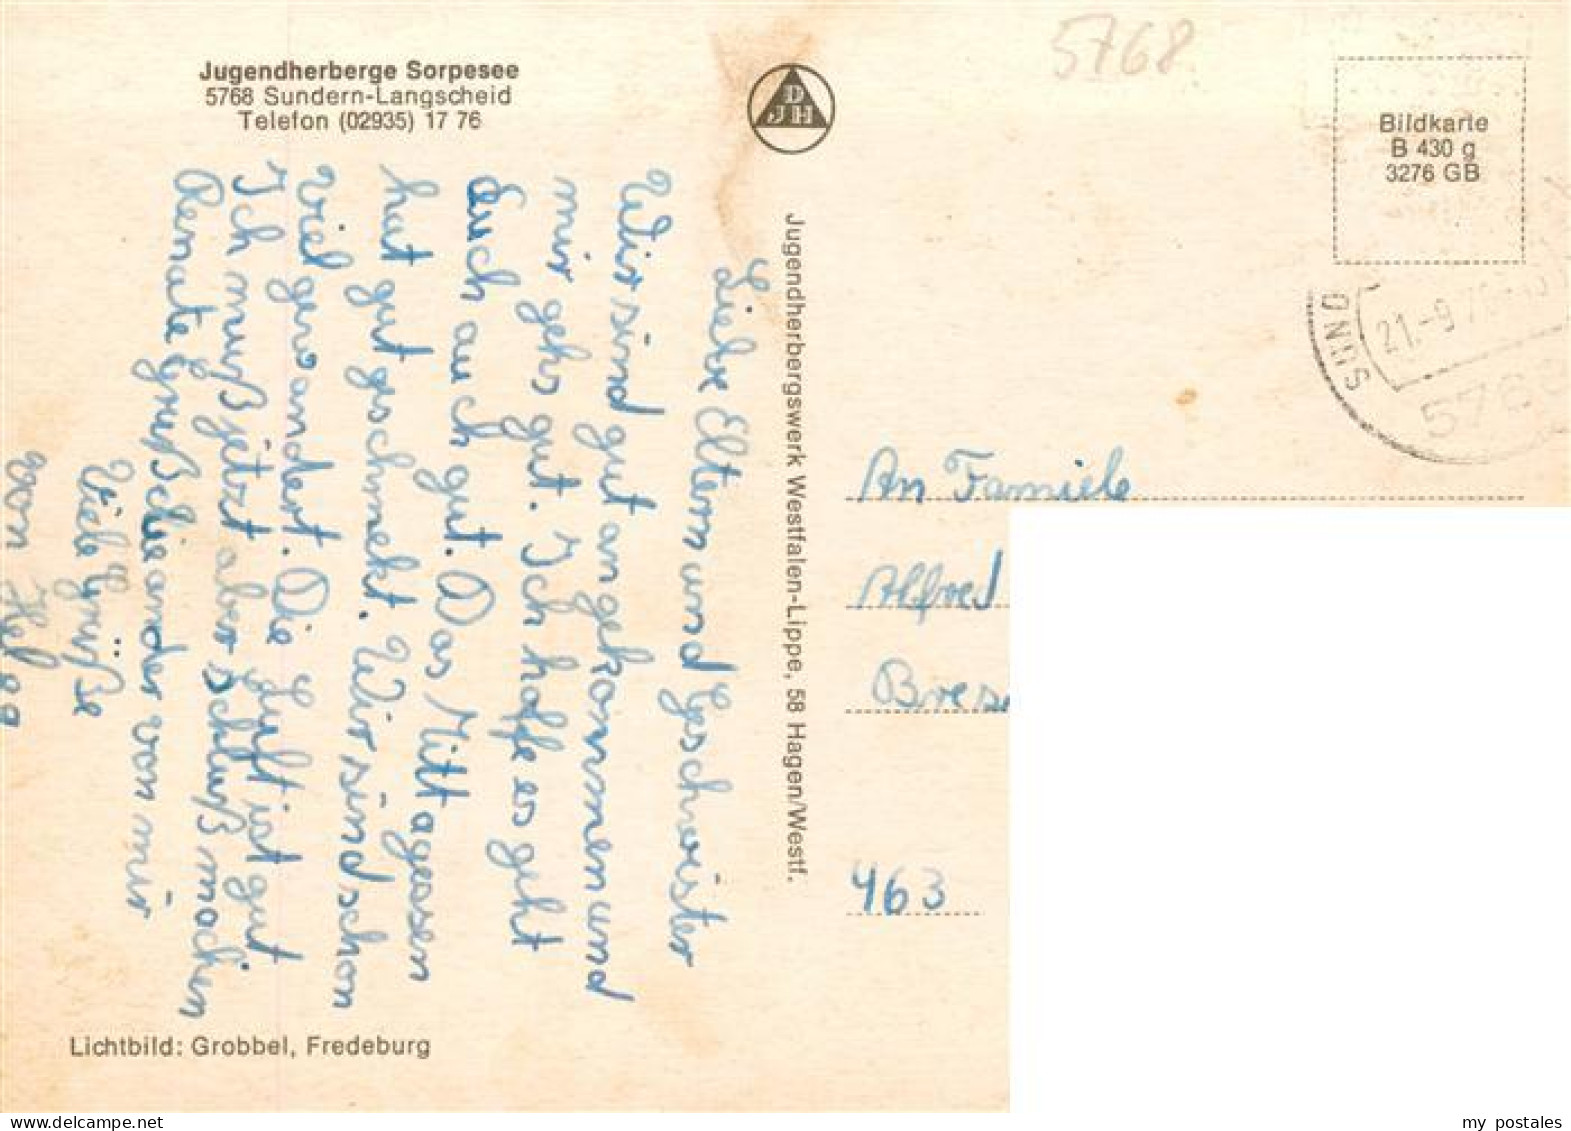 Jugendherberge Sorpesee
5768 Sundern-Langscheid
Telefon (02935) 17 76
DJH
5768
Bildkarte
B 430 g
3276 GB
SUND
21.-9.7
5768
Jugendherbergswerk Westfalen-Lippe, 58 Hagen/Westf.
Liebe Eltern und Geschwister
Wir sind gut angekommen und
mir gehs gut. Ich hoffe es geht
Euch auch gut. Das Mittagessen
hat gut geschmekt. Wir sind schon
viel gewandert. Die Luft ist gut
Ich muß jetzt aber schluß machen
Renate grüß die ander von mir
Viele Grüße
von Helga
An Familie
Alfred
Bres
463
Lichtbild: Grobbel, Fredeburg
my postales